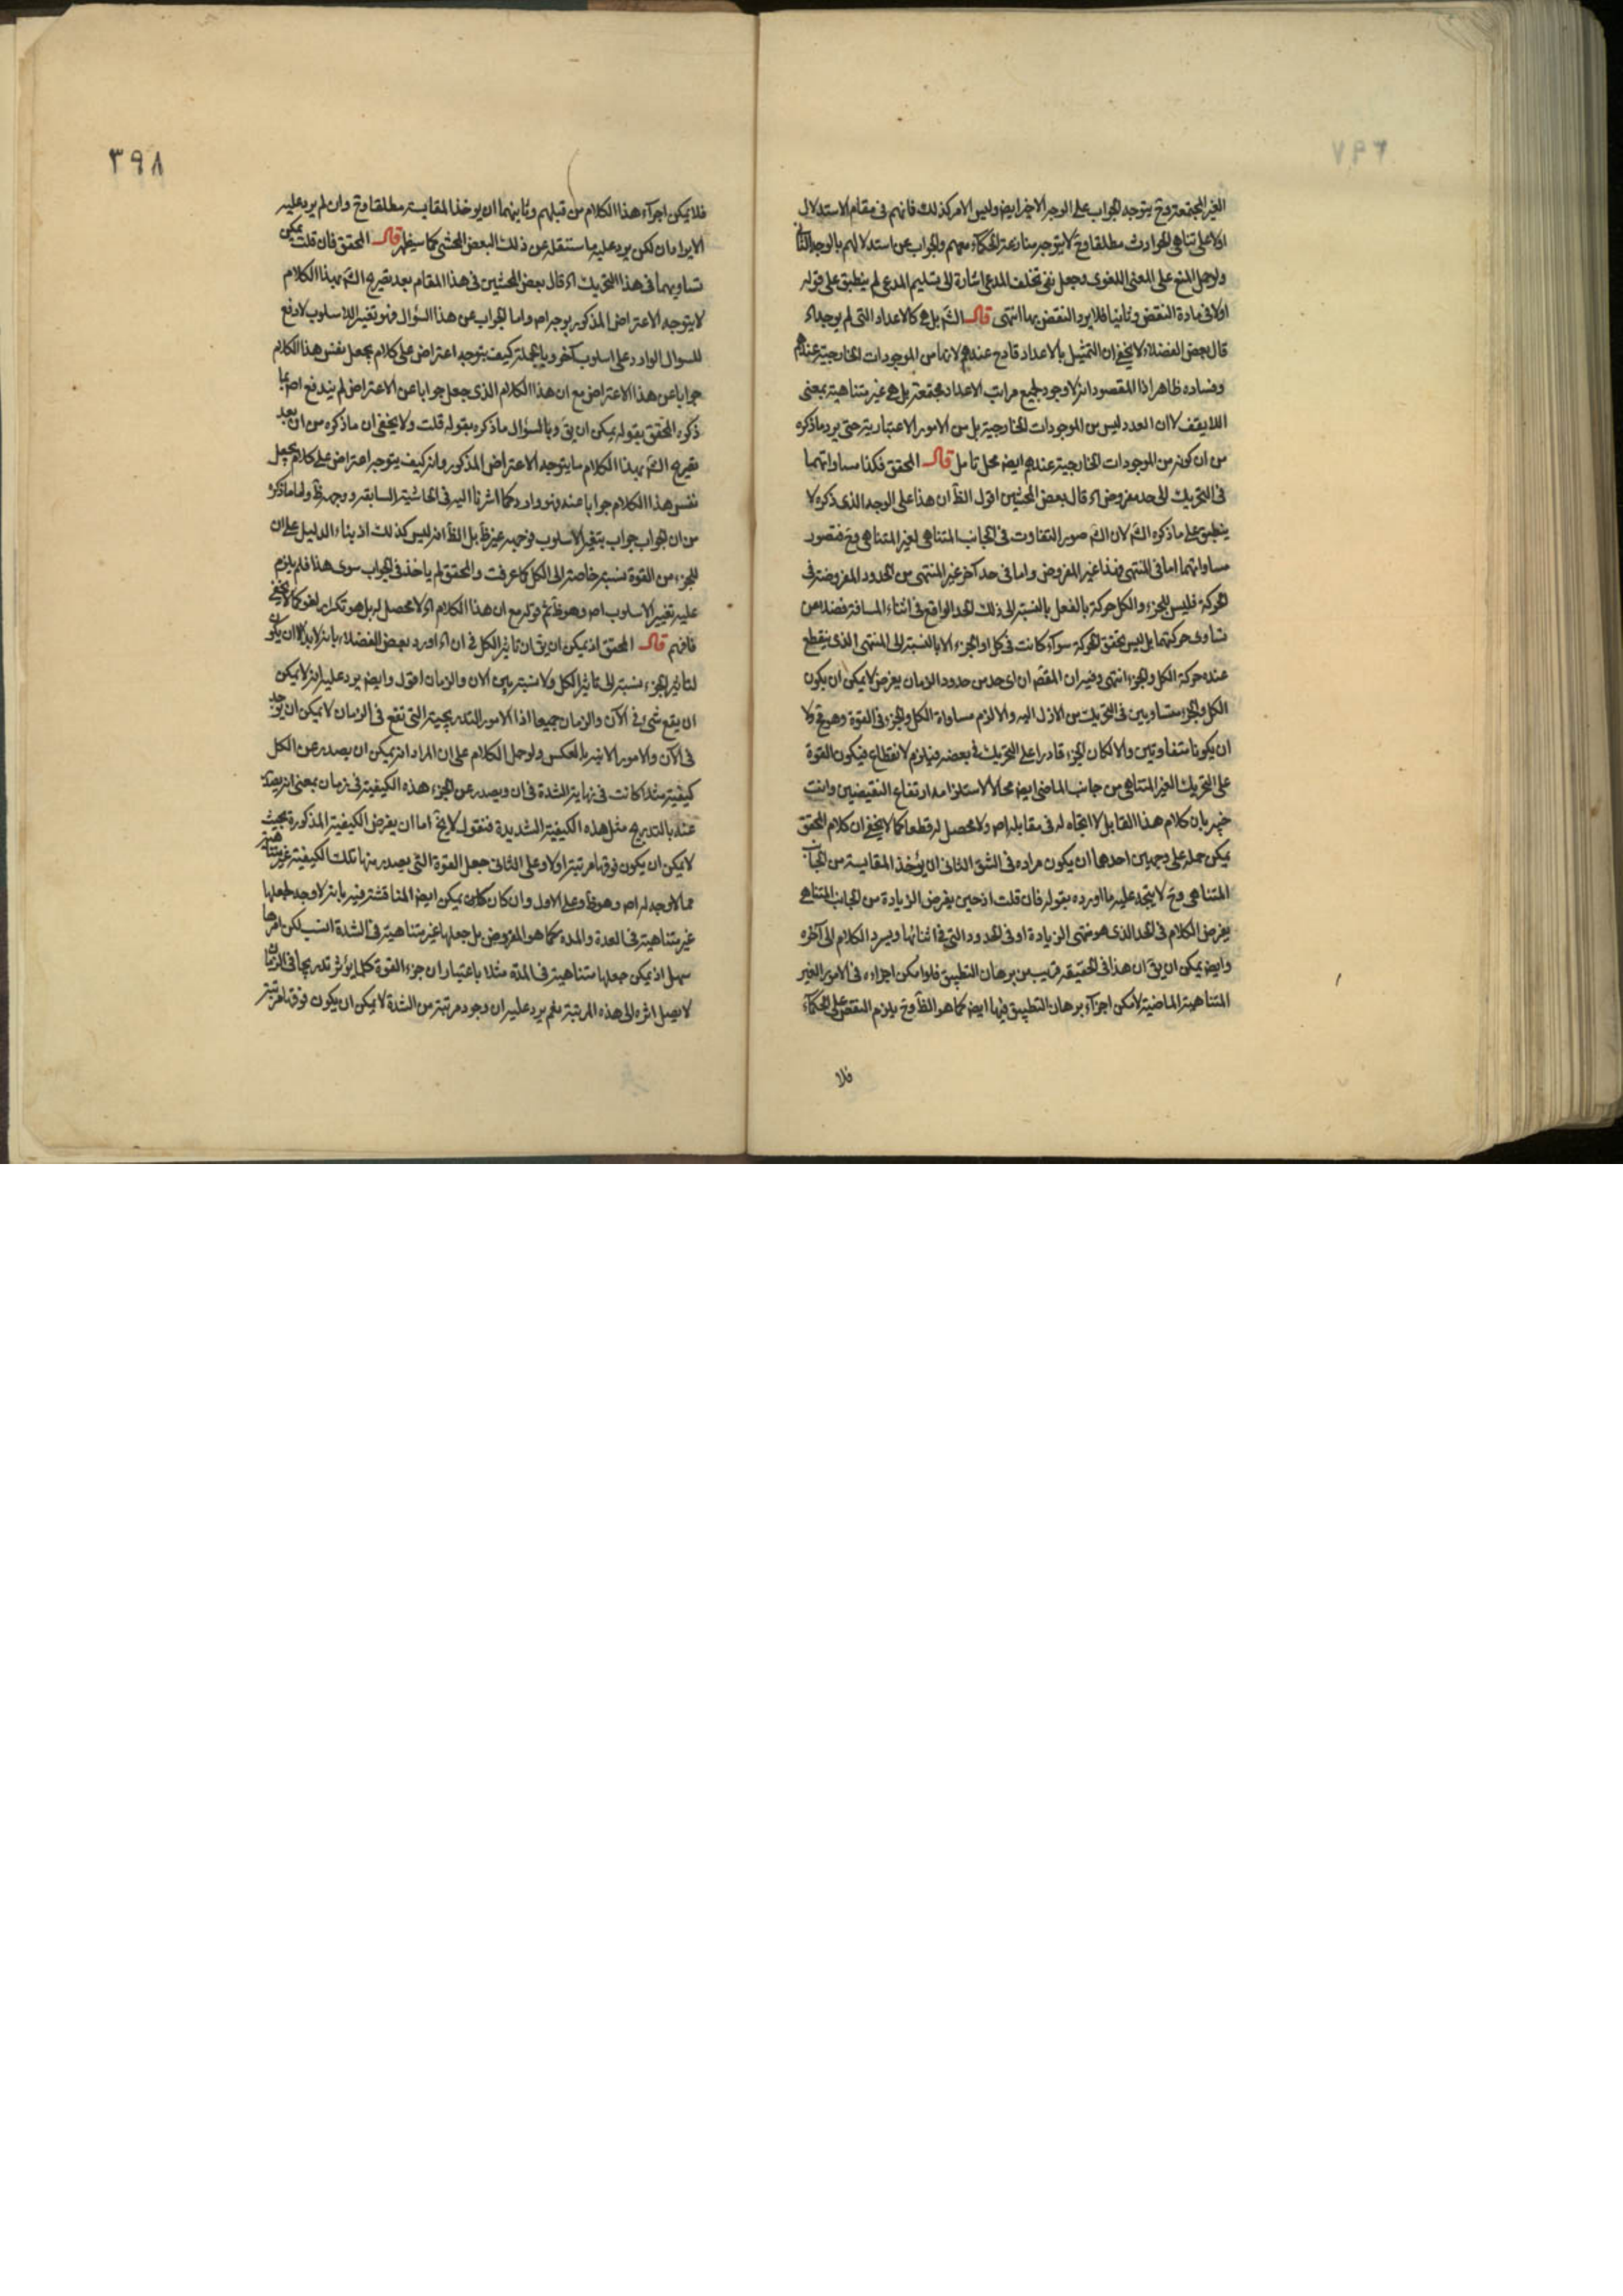 الغير المجتمعة وح يتوجه الجواب على الوجه الاخير ايض وليس الامر كذلك فانهم فى مقام الاستدلال
اولا على تناهى الحوادث مطلقا وح لا يتوجه منازعة الحكماء معهم والجواب عن استدلالهم بالوجه الثانى
ولو حمل المنع على المعنى اللغوى وجعل نفى تخلف المدعى اشارة الى تسليم المدعى لم ينطبق على قوله
اولا فى مادة النقض وثانيا فلا يرد النقض بها انتهى قال الش بل هى كالاعداد التى لم يوجد اه
قال بعض الفضلاء لا يخفى ان التمثيل بالاعداد قادح عندهم لانها من الموجودات الخارجية عندهم
وفساده ظاهر اذ المقصود انه لا وجود لجميع مراتب الاعداد مجتمعة بل هى غير متناهية بمعنى
اللايقف لا ان العدد ليس من الموجودات الخارجية بل من الامور الاعتبارية حتى يرد ما ذكره
من ان كونه من الموجودات الخارجية عندهم ايض محل تامل قال المحقق فكذا مساواتهما
فى التحريك الى حد مفروض اه قال بعض المحشين اقول الظ ان هذا على الوجه الذى ذكره لا
ينطبق على ما ذكره الش لان الش صور التفاوت فى الجانب المتناهى لغير المتناهى وح فتصور
مساواتهما اما فى المنتهى فهذا غير المفروض واما فى حد آخر غير المنتهى من الحدود المفروضة فى
الحركة فليس للجزء والكل حركة بالفعل بالنسبة الى ذلك الحد الواقع فى اثناء المسافة فضلا عن
تساوى حركتهما بل ليس تحقق الحركة سواء كانت فى كل او الجزء الا بالنسبة الى المنتهى الذى ينقطع
عنده حركة الكل والجزء انتهى وفيه ان المقص ان اى حد من حدود الزمان يفرض لا يمكن ان يكون
الكل والجزء متساويين فى التحريك من الازل اليه والا لزم مساواة الكل والجزء فى القوة وهو مح ولا
ان يكونا متفاوتين والا لكان الجزء قادرا على التحريك فى بعضه فيلزم الانقطاع فيكون القوة
على التحريك الغير المتناهى من جانب الماضى ايض محالا لاستلزامه ارتفاع النقيضين وانت
خبير بان كلام هذا القايل لا اتجاه له فى مقابله اص ولا محصل له قطعا كما لا يخفى ان كلام المحقق
يمكن حمله على وجهين احدهما ان يكون مراده فى الشق الثانى ان يؤخذ المقايسة من الجانب
المتناهى وح لا يتجه عليه ما اورده بقوله فان قلت اذ حين يفرض الزيادة من الجانب المتناهى
يفرض الكلام فى الحد الذى هو منتهى الزيادة او فى الحدود التى فى اثنائها ويسرد الكلام الى آخره
وايض يمكن ان يق ان هذا فى الحقيقة قريب من برهان التطبيق فلو امكن اجراءه فى الامور الغير
المتناهية الماضية لامكن اجراء برهان التطبيق فيها ايض كما هو الظ وح يلزم النقض على الحكماء
فلا
٣٩٨
فلا يمكن اجراء هذا الكلام من قبلهم وثانيهما ان يوخذ المقايسة مطلقا وح وان لم يرد عليه
الايرادان لكن يرد عليه ما سننقله عن ذلك البعض المحشى كما سيظهر قال المحقق فان قلت يمكن
تساويهما فى هذا التحريك اه قال بعض المحشين فى هذا المقام بعد تصريح الش بهذا الكلام
لا يتوجه الاعتراض المذكور بوجه اص واما الجواب عن هذا السؤال فهو تغيير الاسلوب لا دفع
للسوال الوارد على اسلوب آخر وبالجملة كيف يتوجه اعتراض على كلام يجعل نفس هذا الكلام
جوابا عن هذا الاعتراض مع ان هذا الكلام الذى جعل جوابا عن الاعتراض لم يندفع اص بما
ذكره المحقق بقوله يمكن ان يق وبالسؤال ما ذكره بقوله قلت ولا يخفى ان ما ذكره من ان بعد
تصريح الش بهذا الكلام ما يتوجه الاعتراض المذكور وانه كيف يتوجه اعتراض على كلام يجعل
نفس هذا الكلام جوابا عنه فهو وارد كما اشرنا اليه فى الحاشية السابقة ووجهه ظ واما ما ذكره
من ان الجواب جواب بتغير الاسلوب فوجهه غير ظ بل الظ انه ليس كذلك اذ بناء الدليل على ان
للجزء من القوة نسبة خاصة الى الكل كما عرفت والمحقق لم ياخذ فى الجواب سوى هذا فلم يلزم
عليه تغيير الاسلوب اص وهو ظ ثم قوله مع ان هذا الكلام اه لا محصل له بل هو تكرار لغو كما لا يخفى
فافهم قال المحقق اذ يمكن ان يق ان تاثير الكل فى ان اه اورد بعض الفضلاء بانه لا بد ان يكون
لتاثير الجزء نسبة الى تاثير الكل ولا نسبة بين الان والزمان اقول وايض يرد عليه انه لا يمكن
ان يقع شىء فى الآن والزمان جميعا اذ الامور التدريجية التى تقع فى الزمان لا يمكن ان يوجد
فى الآن والامور الانية بالعكس ولو حمل الكلام على ان المراد انه يمكن ان يصدر عن الكل
كيفية مثلا كانت فى نهاية الشدة فى ان ويصدر عن الجزء هذه الكيفية فى زمان بمعنى انه يصدر
عنه بالتدريج مثل هذه الكيفية الشديدة فنقول لا يخ اما ان يفرض الكيفية المذكورة بحيث
لا يمكن ان يكون فوقها مرتبة اولا وعلى الثانى جعل القوة التى يصدر منها تلك الكيفية غير متناهية
مما لا وجه له اص وهو ظ وعلى الاول وان كان كان يمكن ايض المناقشة فيه بانه لا وجه لجعلها
غير متناهية فى العدة والمدة كما هو المفروض بل جعلها غير متناهية فى الشدة انسب لكن امرها
سهل اذ يمكن جعلها متناهية فى المدة مثلا باعتبار ان جزء القوة كلما يؤثر تدريجا فى الزمان
لا يصل اثره الى هذه المرتبة نعم يرد عليه ان وجود مرتبة من الشدة لا يمكن ان يكون فوقها مرتبة